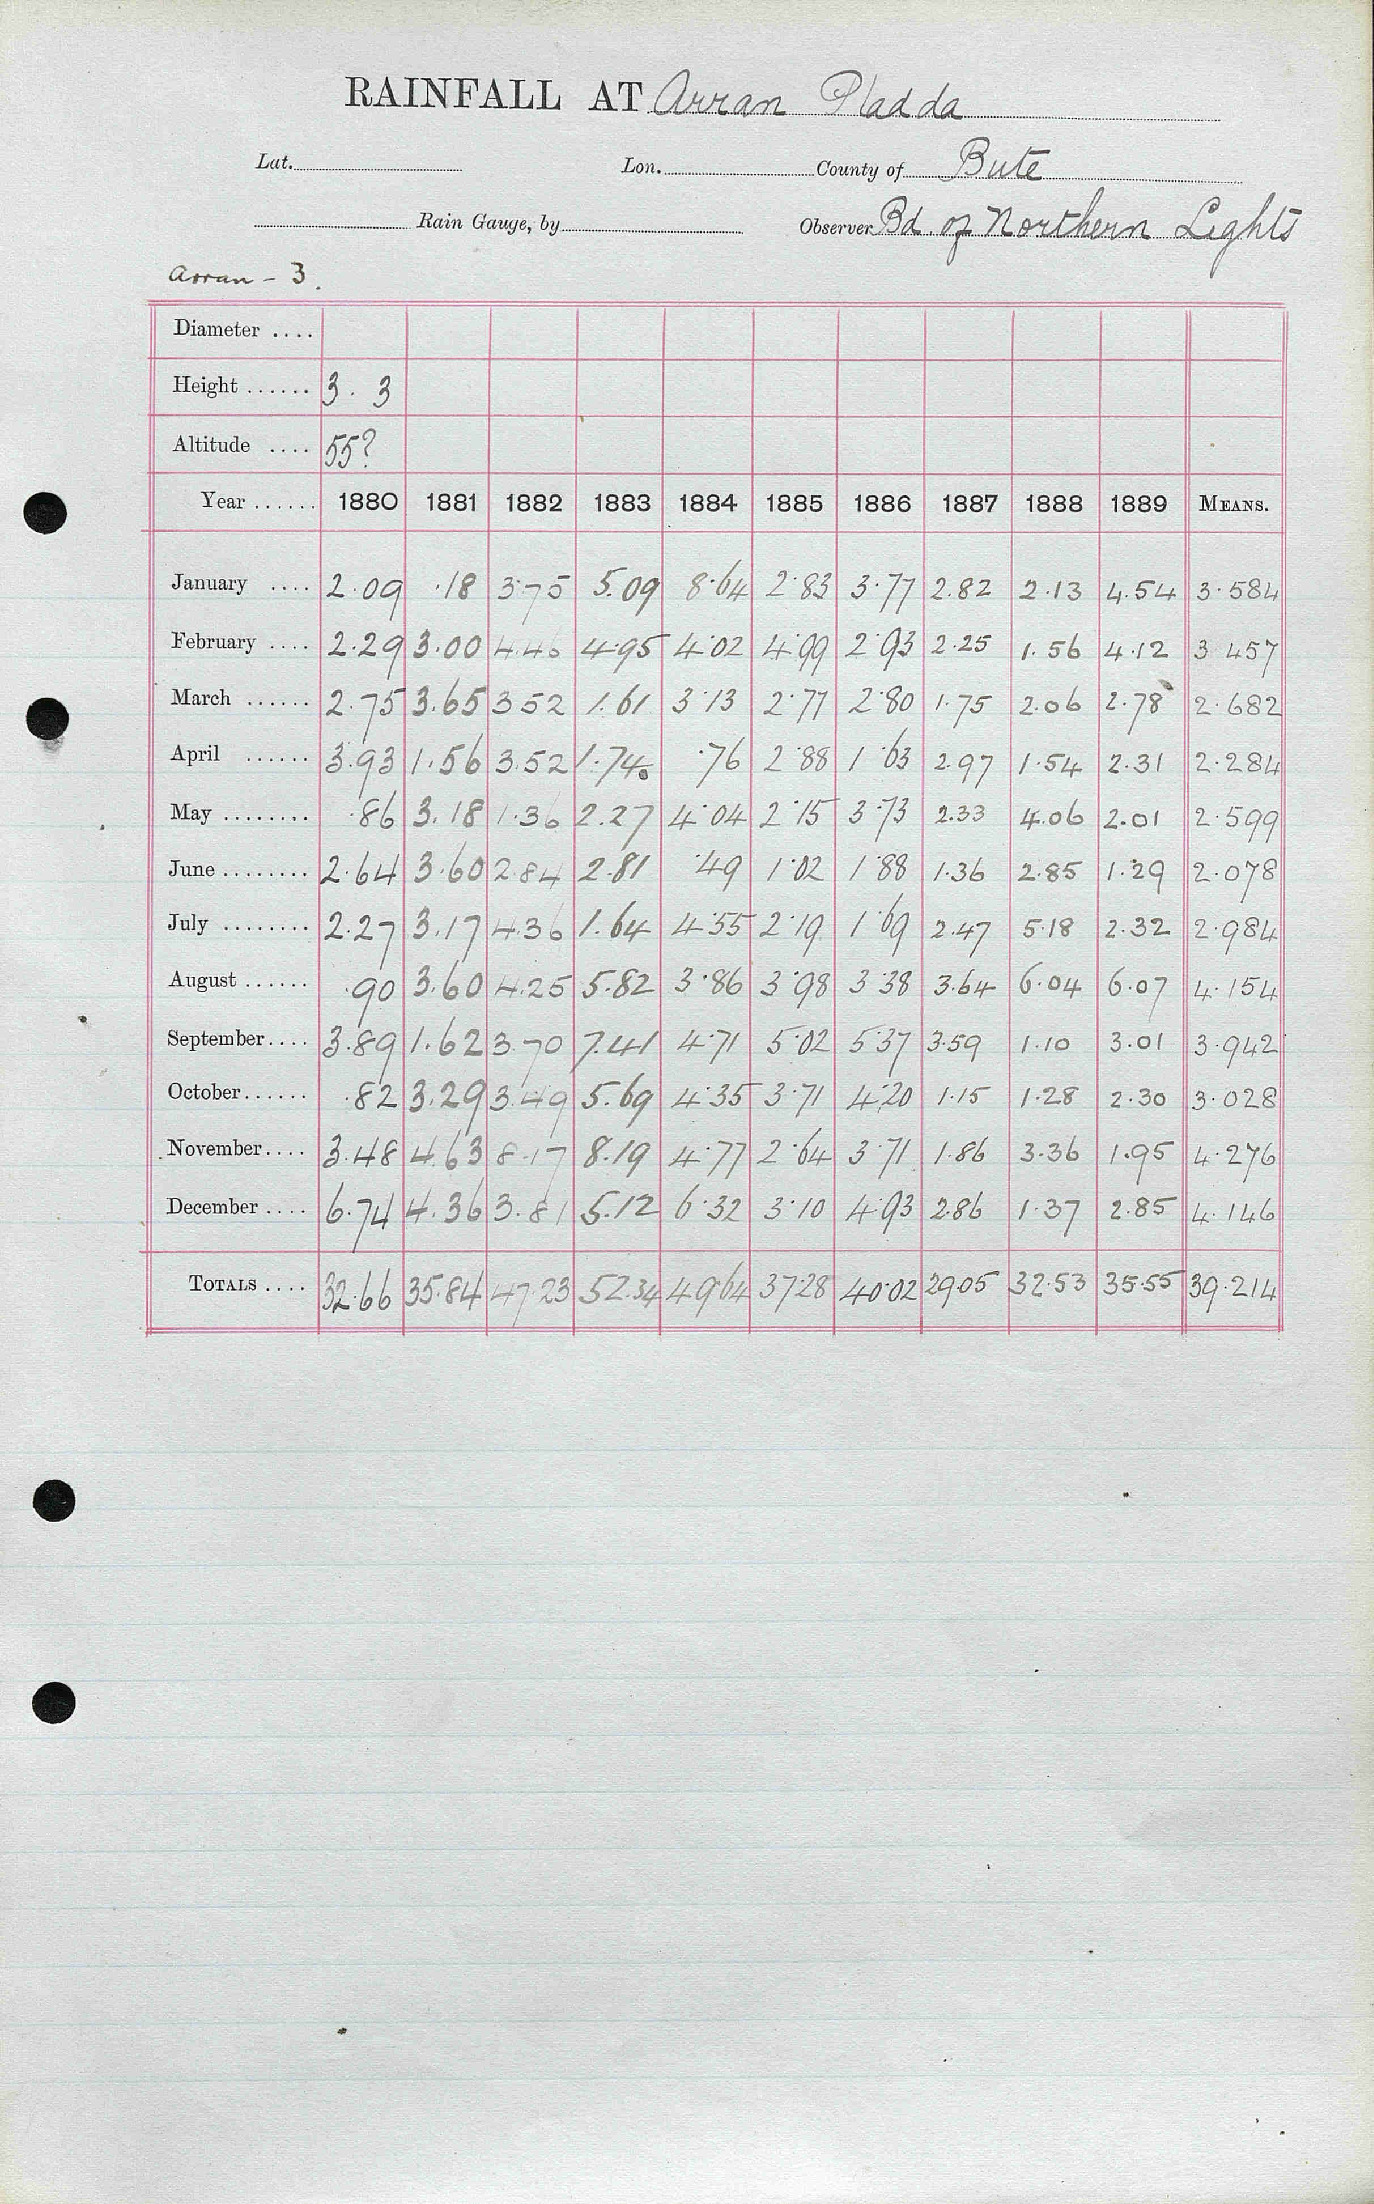 RAINFALL AT Arran Pladda
Lat. Lon. County of Bute
Rain Gauge, by Observer Bd. of Northern Lights
Arran - 3.
Diameter ....
Height ...... 3. 3
Altitude .... 55?
Year ...... 1880 1881 1882 1883 1884 1885 1886 1887 1888 1889 MEANS.
January .... 2.09 .18 3.75 5.09 8.64 2.83 3.77 2.82 2.13 4.54 3.584
February .... 2.29 3.00 4.46 4.95 4.02 4.99 2.93 2.25 1.56 4.12 3 457
March ...... 2.75 3.65 3 52 1.61 3.13 2.77 2.80 1.75 2.06 2.78 2.682
April ...... 3.93 1.56 3.52 1.74. .76 2.88 1 63 2.97 1.54 2.31 2.284
May ........ .86 3.18 1.36 2.27 4.04 2.15 3.73 2.33 4.06 2.01 2.599
June ........ 2.64 3.60 2.84 2.81 .49 1.02 1.88 1.36 2.85 1.29 2.078
July ........ 2.27 3.17 4.36 1.64 4.55 2.19 1.69 2.47 5.18 2.32 2.984
August ...... .90 3.60 4.25 5.82 3.86 3.98 3.38 3.64 6.04 6.07 4.154
September.... 3.89 1.62 3.70 7.41 4.71 5.02 5.37 3.59 1.10 3.01 3.942
October...... .82 3.29 3.49 5.69 4.35 3.71 4.20 1.15 1.28 2.30 3.028
November.... 3.48 4.63 8.17 8.19 4.77 2.64 3.71 1.86 3.36 1.95 4.276
December .... 6.74 4.36 3.81 5.12 6.32 3.10 4.93 2.86 1.37 2.85 4.146
TOTALS .... 32.66 35.84 47.23 52.34 49.64 37.28 40.02 29.05 32.53 35.55 39.214